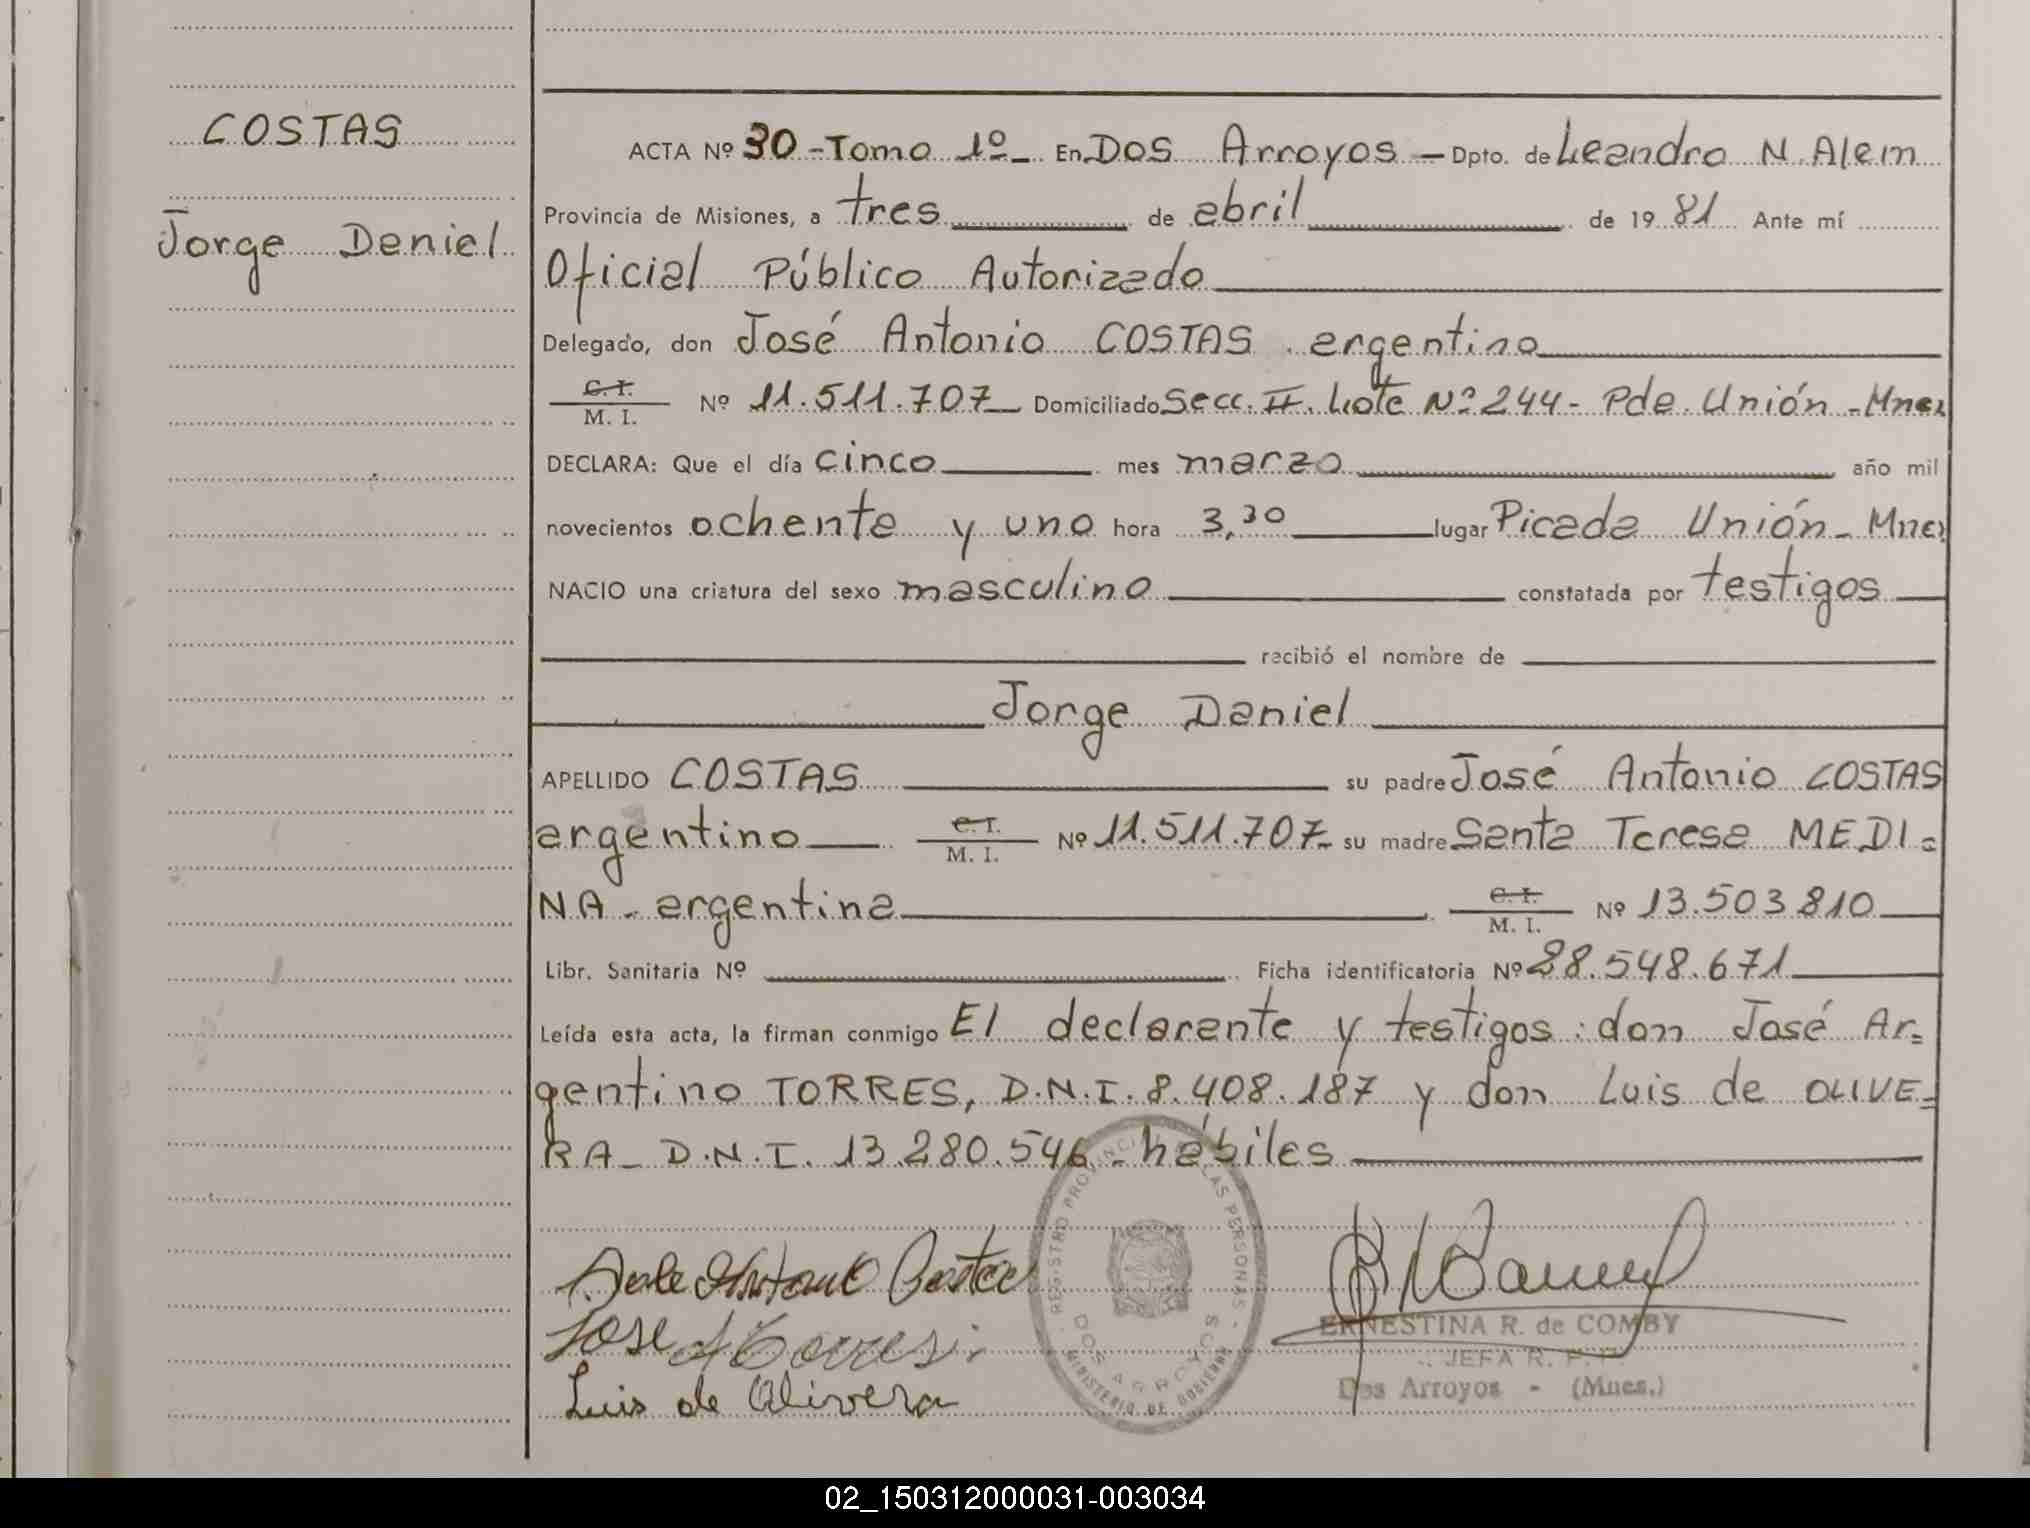 COSTAS
Jorge Daniel
ACTA Nº 30 - Tomo 1º - En DOS Arroyos - Dpto. de Leandro N. Alem
Provincia de Misiones, a tres de abril de 1981 Ante mí
Oficial Público Autorizado
Delegado, don José Antonio COSTAS argentino
C. I.
M. I. Nº 11.511.707 Domiciliado Secc. II. Lote Nº 244 - Pda. Unión - Mnes
DECLARA: Que el día cinco mes marzo año mil
novecientos ochenta y uno hora 3,30 lugar Picada Unión - Mnes
NACIO una criatura del sexo masculino constatada por testigos
recibió el nombre de
Jorge Daniel
APELLIDO COSTAS su padre José Antonio COSTAS
argentino C. I.
M. I. Nº 11.511.707 - su madre Santa Teresa MEDI=
NA - argentina C. I.
M. I. Nº 13.503.810
Libr. Sanitaria Nº Ficha identificatoria Nº 28.548.671
Leída esta acta, la firman conmigo El declarante y testigos: don José Ar=
gentino TORRES, D.N.I. 8.408.187 y don Luis de OLIVE=
RA - D.N.I. 13.280.546 - hábiles
REGISTRO PROVINCIAL DE LAS PERSONAS
DOS ARROYOS
MINISTERIO DE GOBIERNO
Jose Antonio Costas
Jose A Torres
Luis de Olivera
ERNESTINA R. de COMBY
JEFA R. P. P.
Dos Arroyos - (Mnes.)
02_150312000031-003034